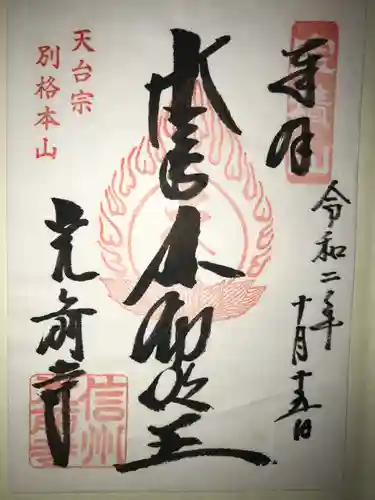 奉拝
令和二年
十月十五日
不動明王
天台宗
別格本山
光前寺
信州